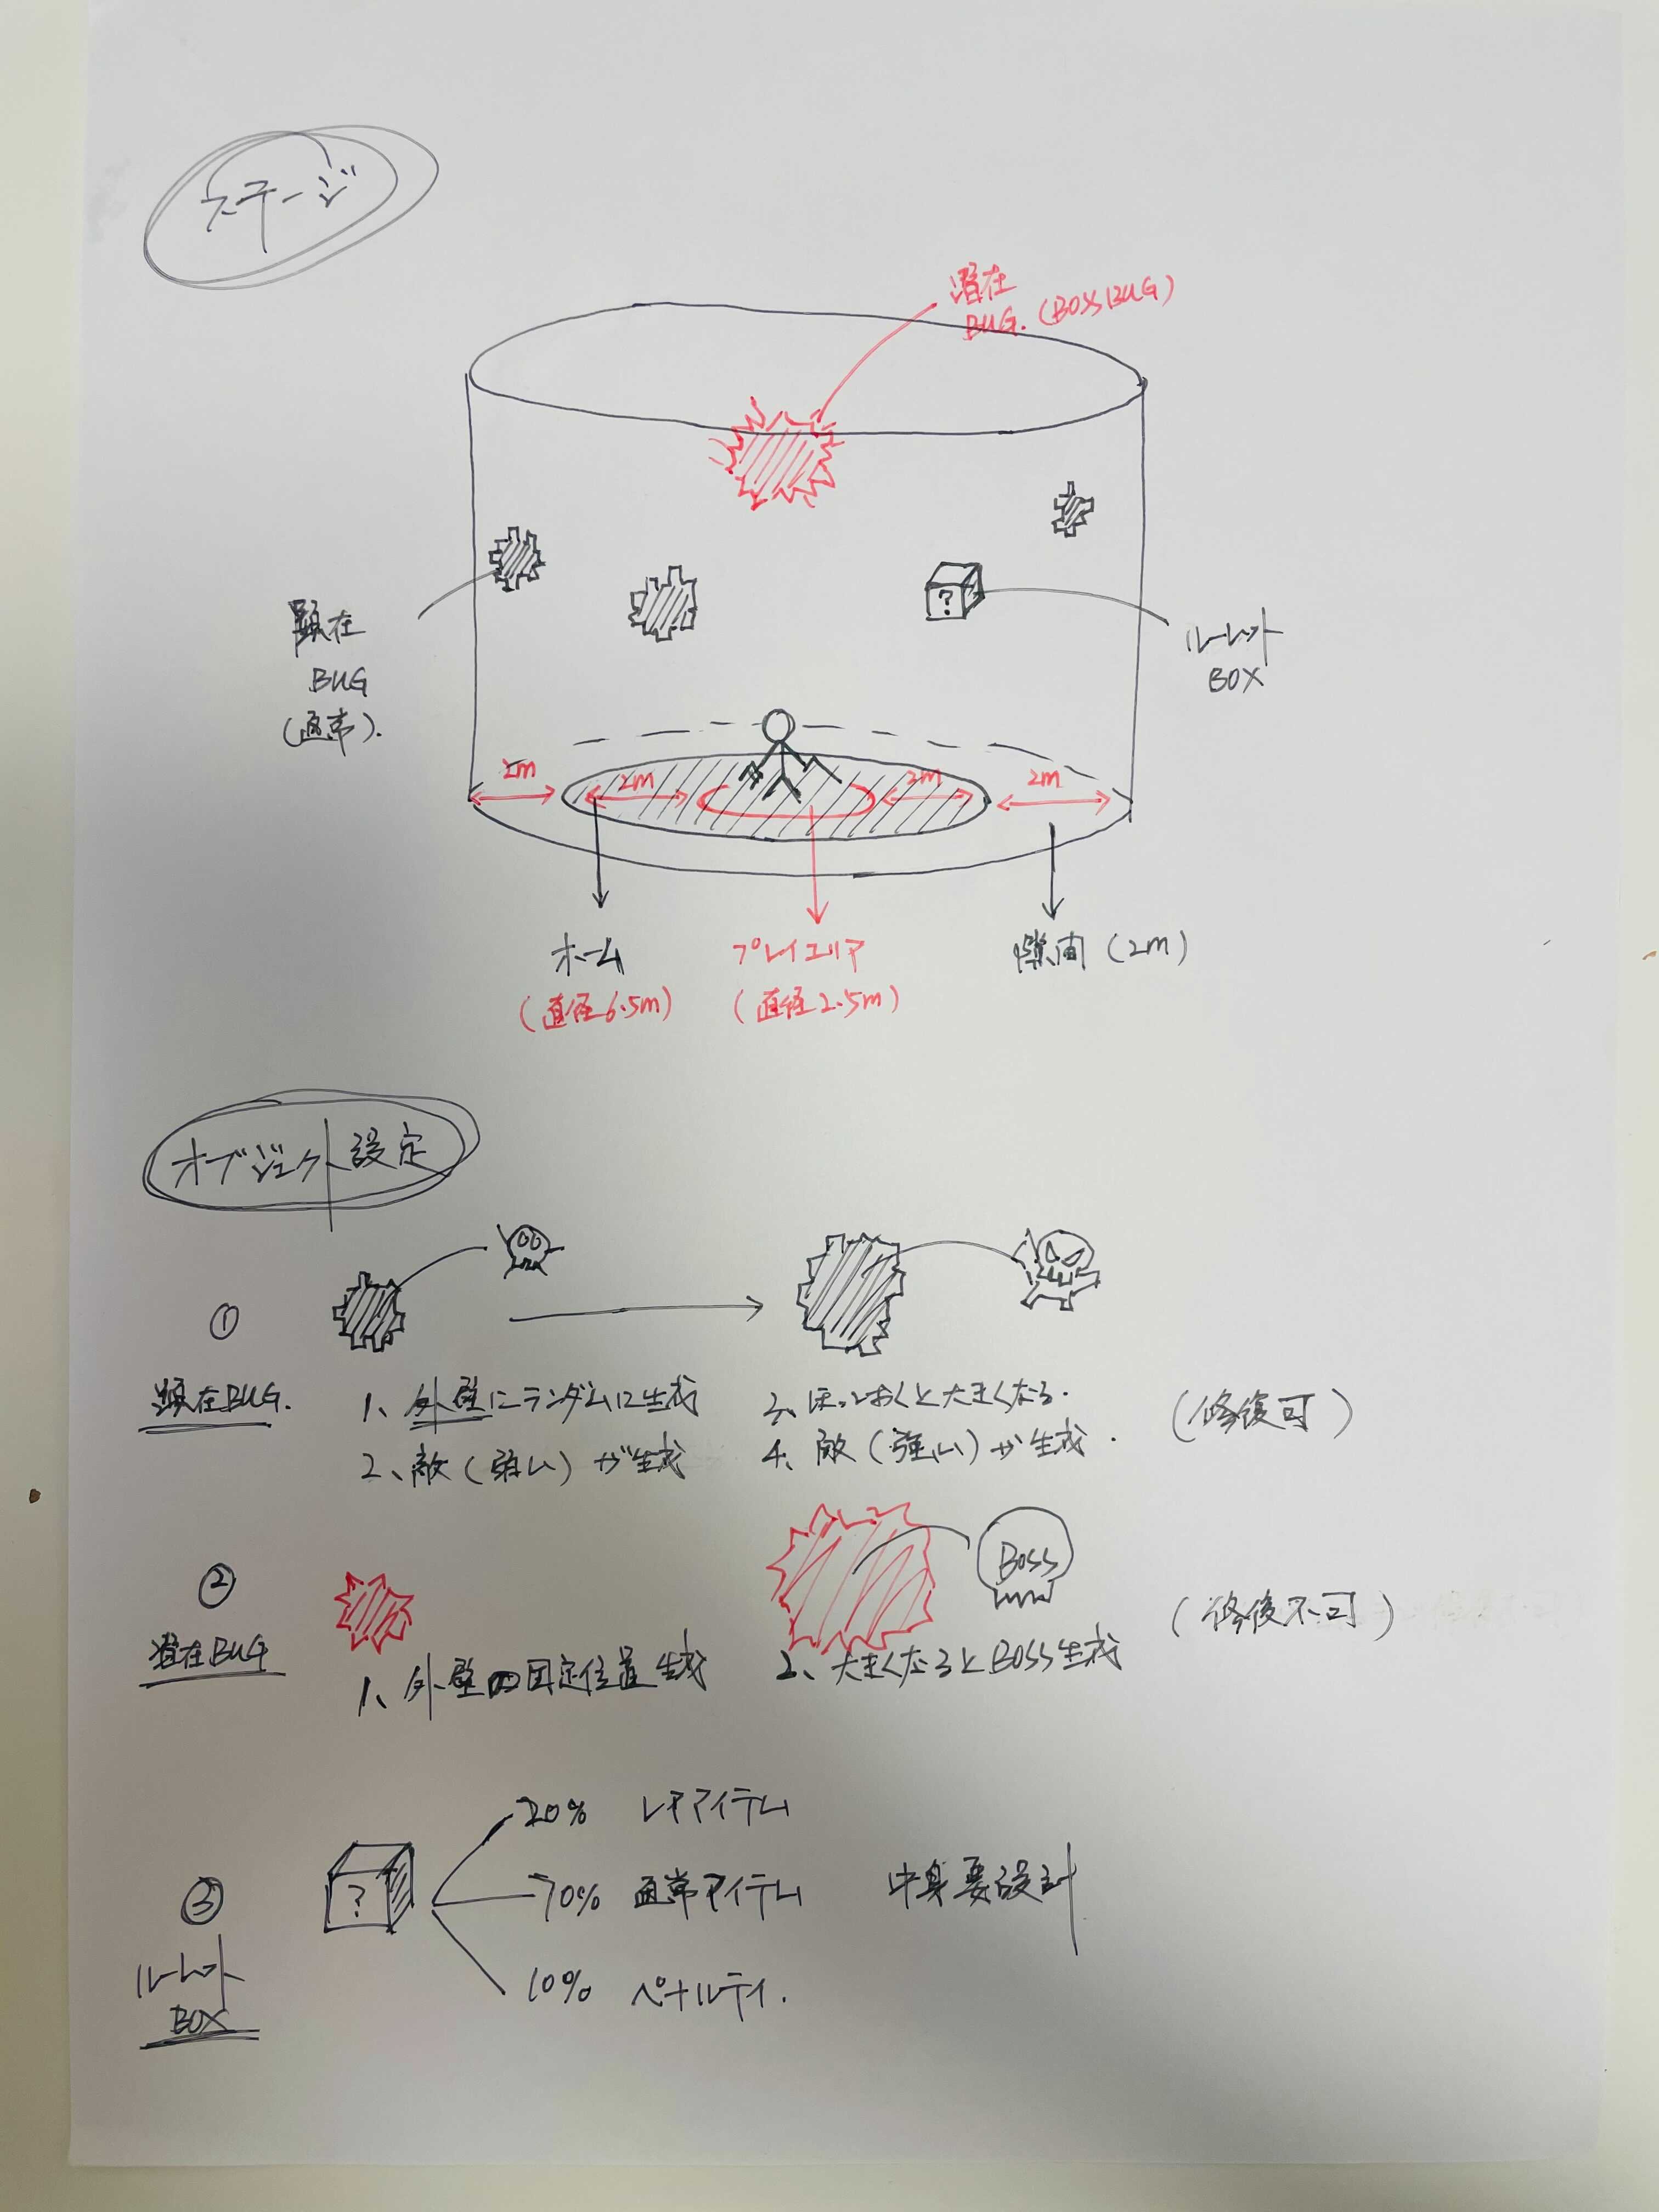 ステージ
潜在
BUG.(BOSSBUG)
顕在
BUG
(通常).
?
ルーレット
BOX
2m
2m
2m
2m
ホーム
(直径6.5m)
プレイエリア
(直径2.5m)
隙間(2m)
オブジェクト設定
①
顕在BUG.
1、外壁にランダムに生成
2、敵(弱い)が生成
3、ほっとおくと大きくなる.
4、敵(強い)が生成.
(修復可)
②
潜在BUG
1、外壁の固定位置生成
BOSS
2、大きくなるとBOSS生成
(修復不可)
③
ルーレット
BOX
?
20% レアアイテム
70% 通常アイテム
10% ペナルティ.
中身要設計